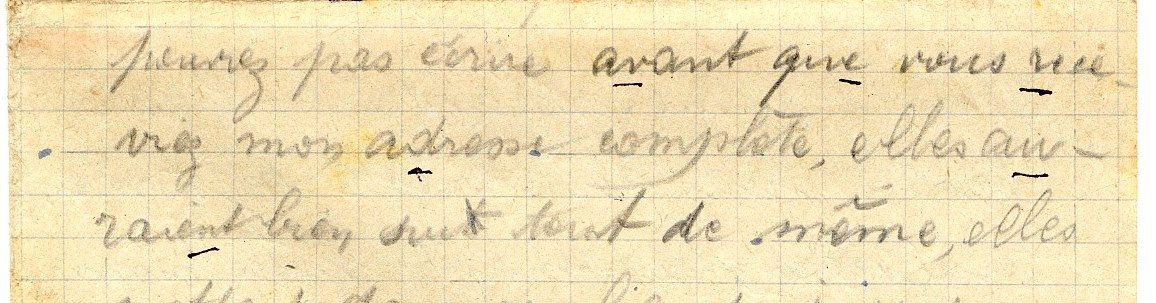 pouvez pas écrire avant que vous rece-
viez mon adresse complète, elles au-
raient bien suit tout de même, elles